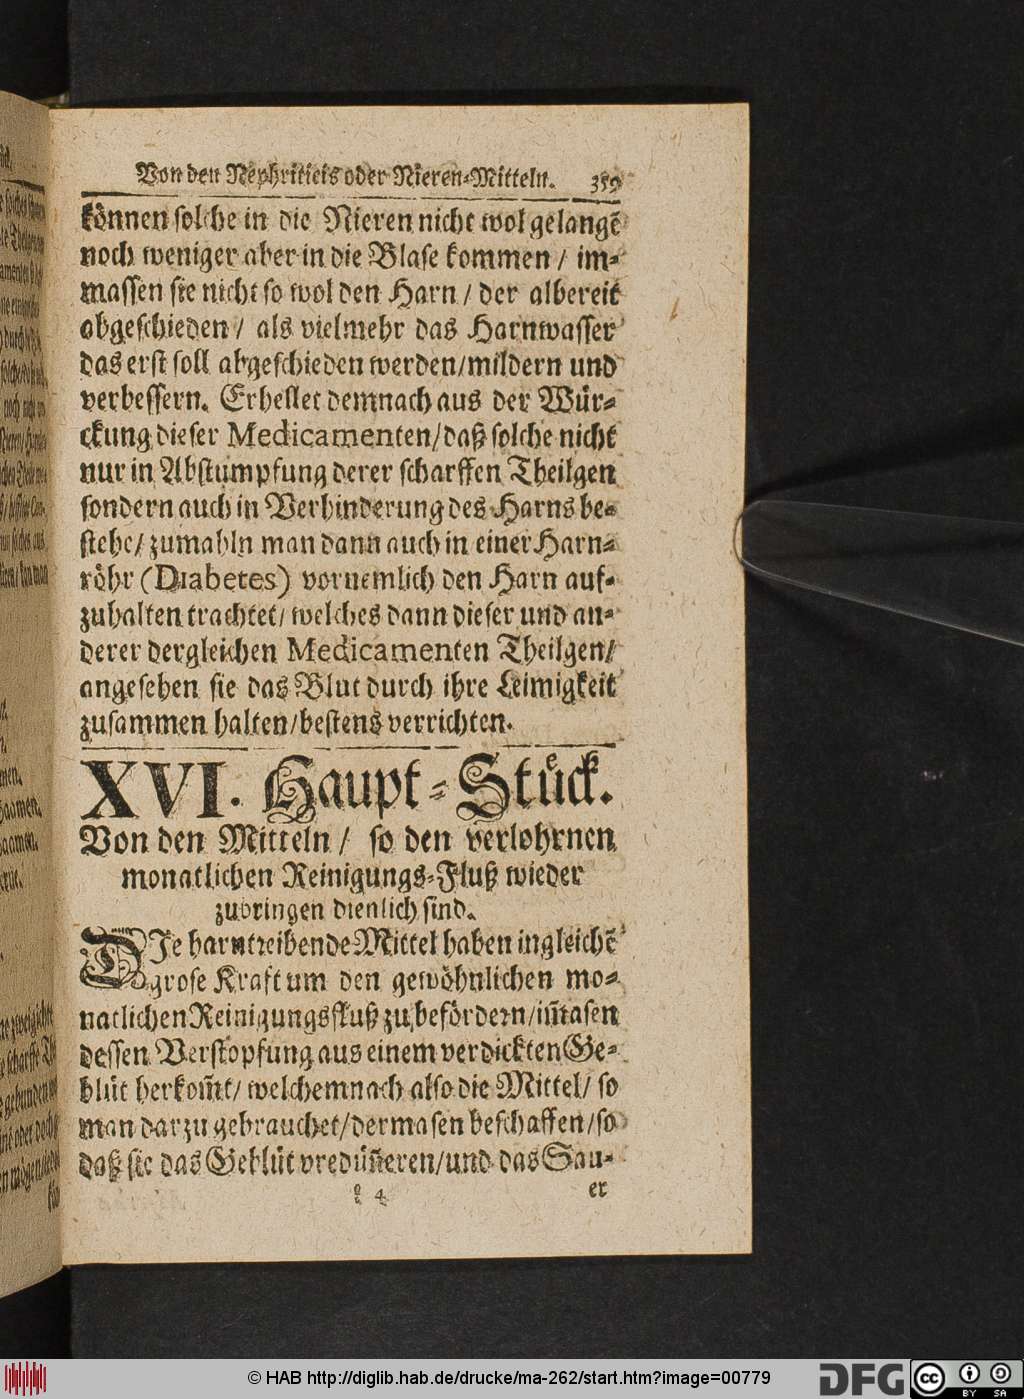 Von den Nephriticis oder Nieren-Mitteln. 359
können solche in die Nieren nicht wol gelangẽ
noch weniger aber in die Blase kommen / im-
massen sie nicht so wol den Harn / der albereit
abgeschieden / als vielmehr das Harnwasser
das erst soll abgeschieden werden/mildern und
verbessern. Erhellet demnach aus der Wür-
ckung dieser Medicamenten/daß solche nicht
nur in Abstumpfung derer scharffen Theilgen
sondern auch in Verhinderung des Harns be-
stehe/ zumahln man dann auch in einer Harn-
röhr (Diabetes) vornemlich den Harn auf-
zuhalten trachtet/ welches dann dieser und an-
derer dergleichen Medicamenten Theilgen/
angesehen sie das Blut durch ihre Leimigkeit
zusammen halten/bestens verrichten.
XVI. Haupt-Stück.
Von den Mitteln / so den verlohrnen
monatlichen Reinigungs-Fluß wieder
zubringen dienlich sind.
DIe harntreibende Mittel haben ingleichẽ
grose Kraft um den gewöhnlichen mo-
natlichen Reinigungsfluß zu befördern/im̃tasen
dessen Verstopfung aus einem verdickten Ge-
blüt herkom̃t/ welchemnach also die Mittel/ so
man darzu gebrauchet/dermasen beschaffen/so
daß sie das Geblüt vredün̄eren/und das Sau-
4 er
© HAB http://diglib.hab.de/drucke/ma-262/start.htm?image=00779
DFG
cc
BY SA